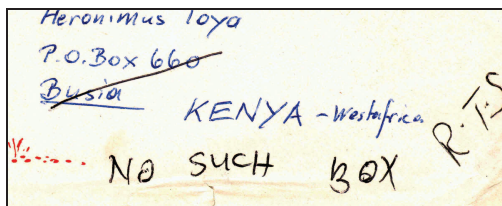 Heronimus Toya
P.O. Box 660
Busia
KENYA - Westafrica
R.T.S
NO SUCH BOX